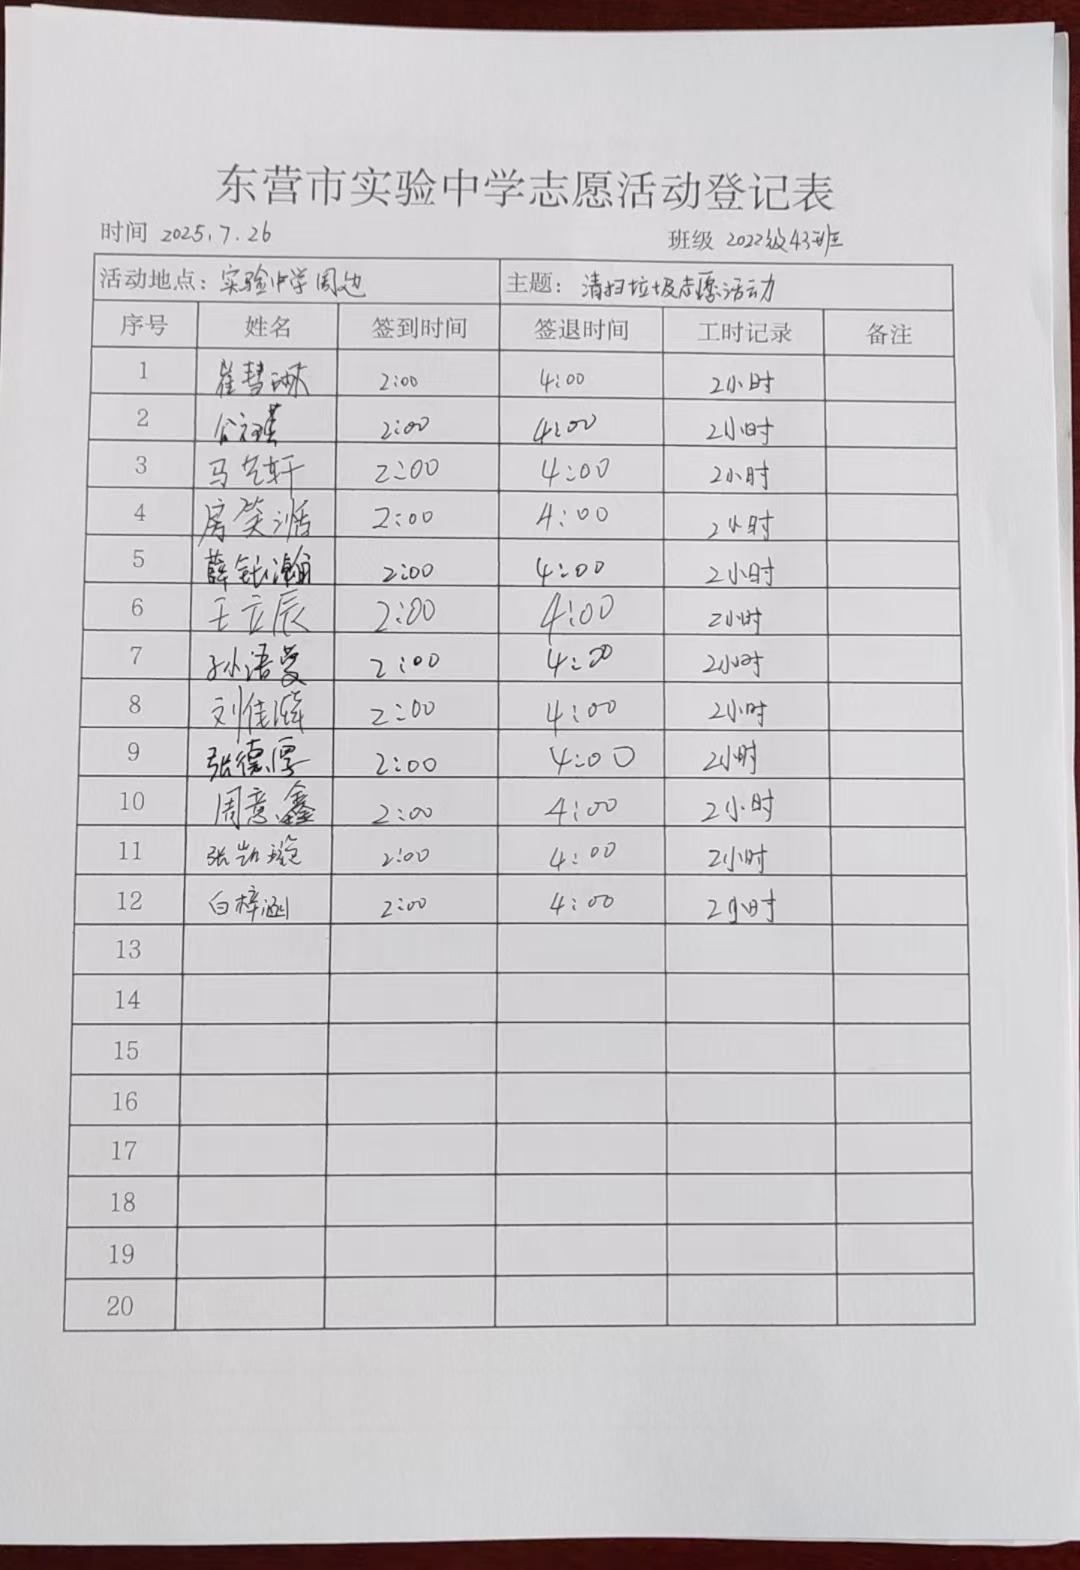 东营市实验中学志愿活动登记表
时间 2025.7.26 班级 2022级43班
活动地点：实验中学周边 主题：清扫垃圾志愿活动
序号 姓名 签到时间 签退时间 工时记录 备注
1 崔慧琳 2:00 4:00 2小时
2 2:00 4:00 2小时
3 马艺轩 2:00 4:00 2小时
4 房笑湉 2:00 4:00 2小时
5 薛钰瀚 2:00 4:00 2小时
6 王立辰 2:00 4:00 2小时
7 孙语曼 2:00 4:00 2小时
8 刘佳 2:00 4:00 2小时
9 张德厚 2:00 4:00 2小时
10 周意鑫 2:00 4:00 2小时
11 张凯璇 2:00 4:00 2小时
12 白梓涵 2:00 4:00 2小时
13
14
15
16
17
18
19
20